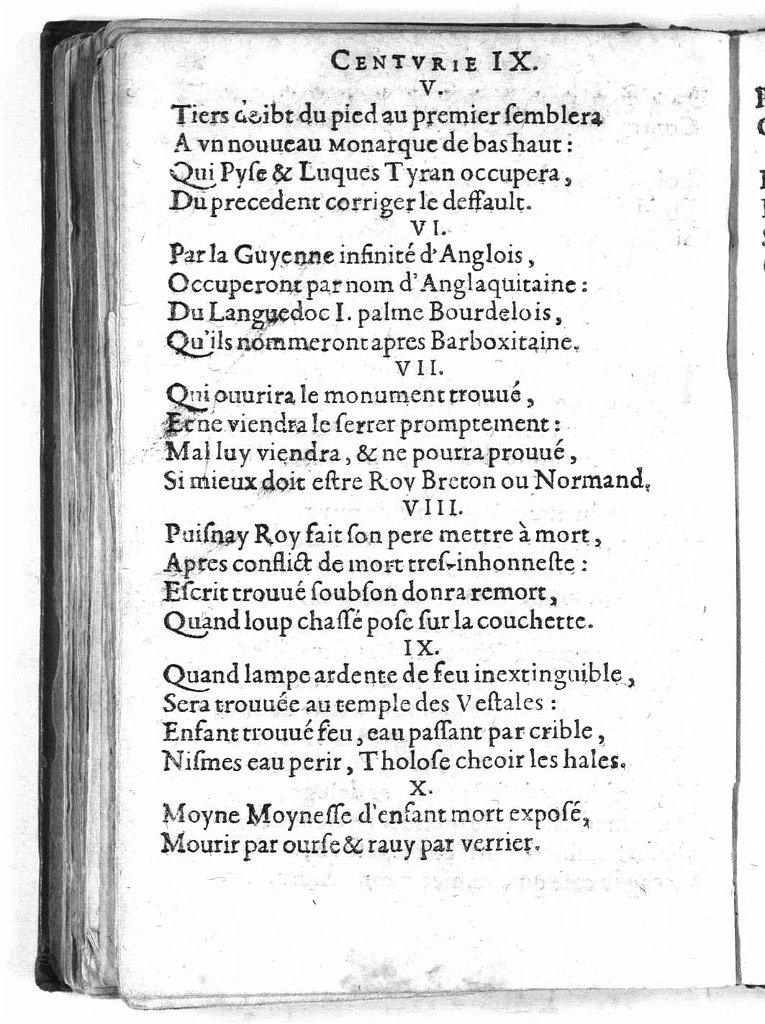 CENTVRIE IX.
V.
Tiers doibt du pied au premier ſemblera
A vn nouueau Monarque de bas haut :
Qui Pyſe & Luques Tyran occupera,
Du precedent corriger le deffault.
VI.
Par la Guyenne infinité d'Anglois,
Occuperont par nom d'Anglaquitaine :
Du Languedoc I. palme Bourdelois,
Qu'ils nommeront apres Barboxitaine.
VII.
Qui ouurira le monument trouué,
Et ne viendra le ſerrer promptement :
Mal luy viendra, & ne pourra prouué,
Si mieux doit eſtre Roy Breton ou Normand.
VIII.
Puiſnay Roy fait ſon pere mettre à mort,
Apres conflict de mort treſ-inhonneſte :
Eſcrit trouué ſoubſon donra remort,
Quand loup chaſſé poſe ſur la couchette.
IX.
Quand lampe ardente de feu inextinguible,
Sera trouuée au temple des Veſtales :
Enfant trouué feu, eau paſſant par crible,
Niſmes eau perir, Tholoſe cheoir les hales.
X.
Moyne Moyneſſe d'enfant mort expoſé,
Mourir par ourſe & rauy par verrier.